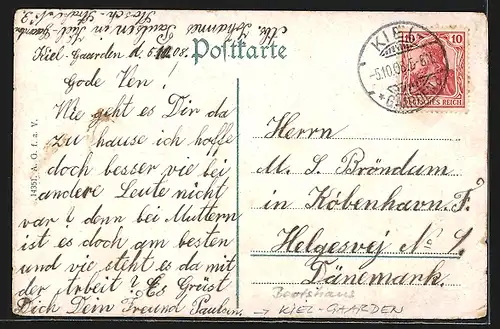 Joh. Johannes Paulsen in Kiel Gaarden
Kiel-Gaarden d. 5.10.08.
Postkarte
Gode Ven!
Wie geht es Dir da
zu hause ich hoffe
doch besser vie bei
andere Leute nicht
var? denn bei Muttern
ist es doch am besten
und vie steht es da mit
der Arbeit? Es Grüst
Dich Dein Freund Paulsen
14351 A. O. f. a. V.
KIEL
5.10.08.
* GAARDEN *
10 10
DEUTSCHES REICH
Herrn
M. S. Bröndum
in Köbenhavn. F.
Helgesvej No
Dänemark.
Bootshaus
→ KIEL-GAARDEN